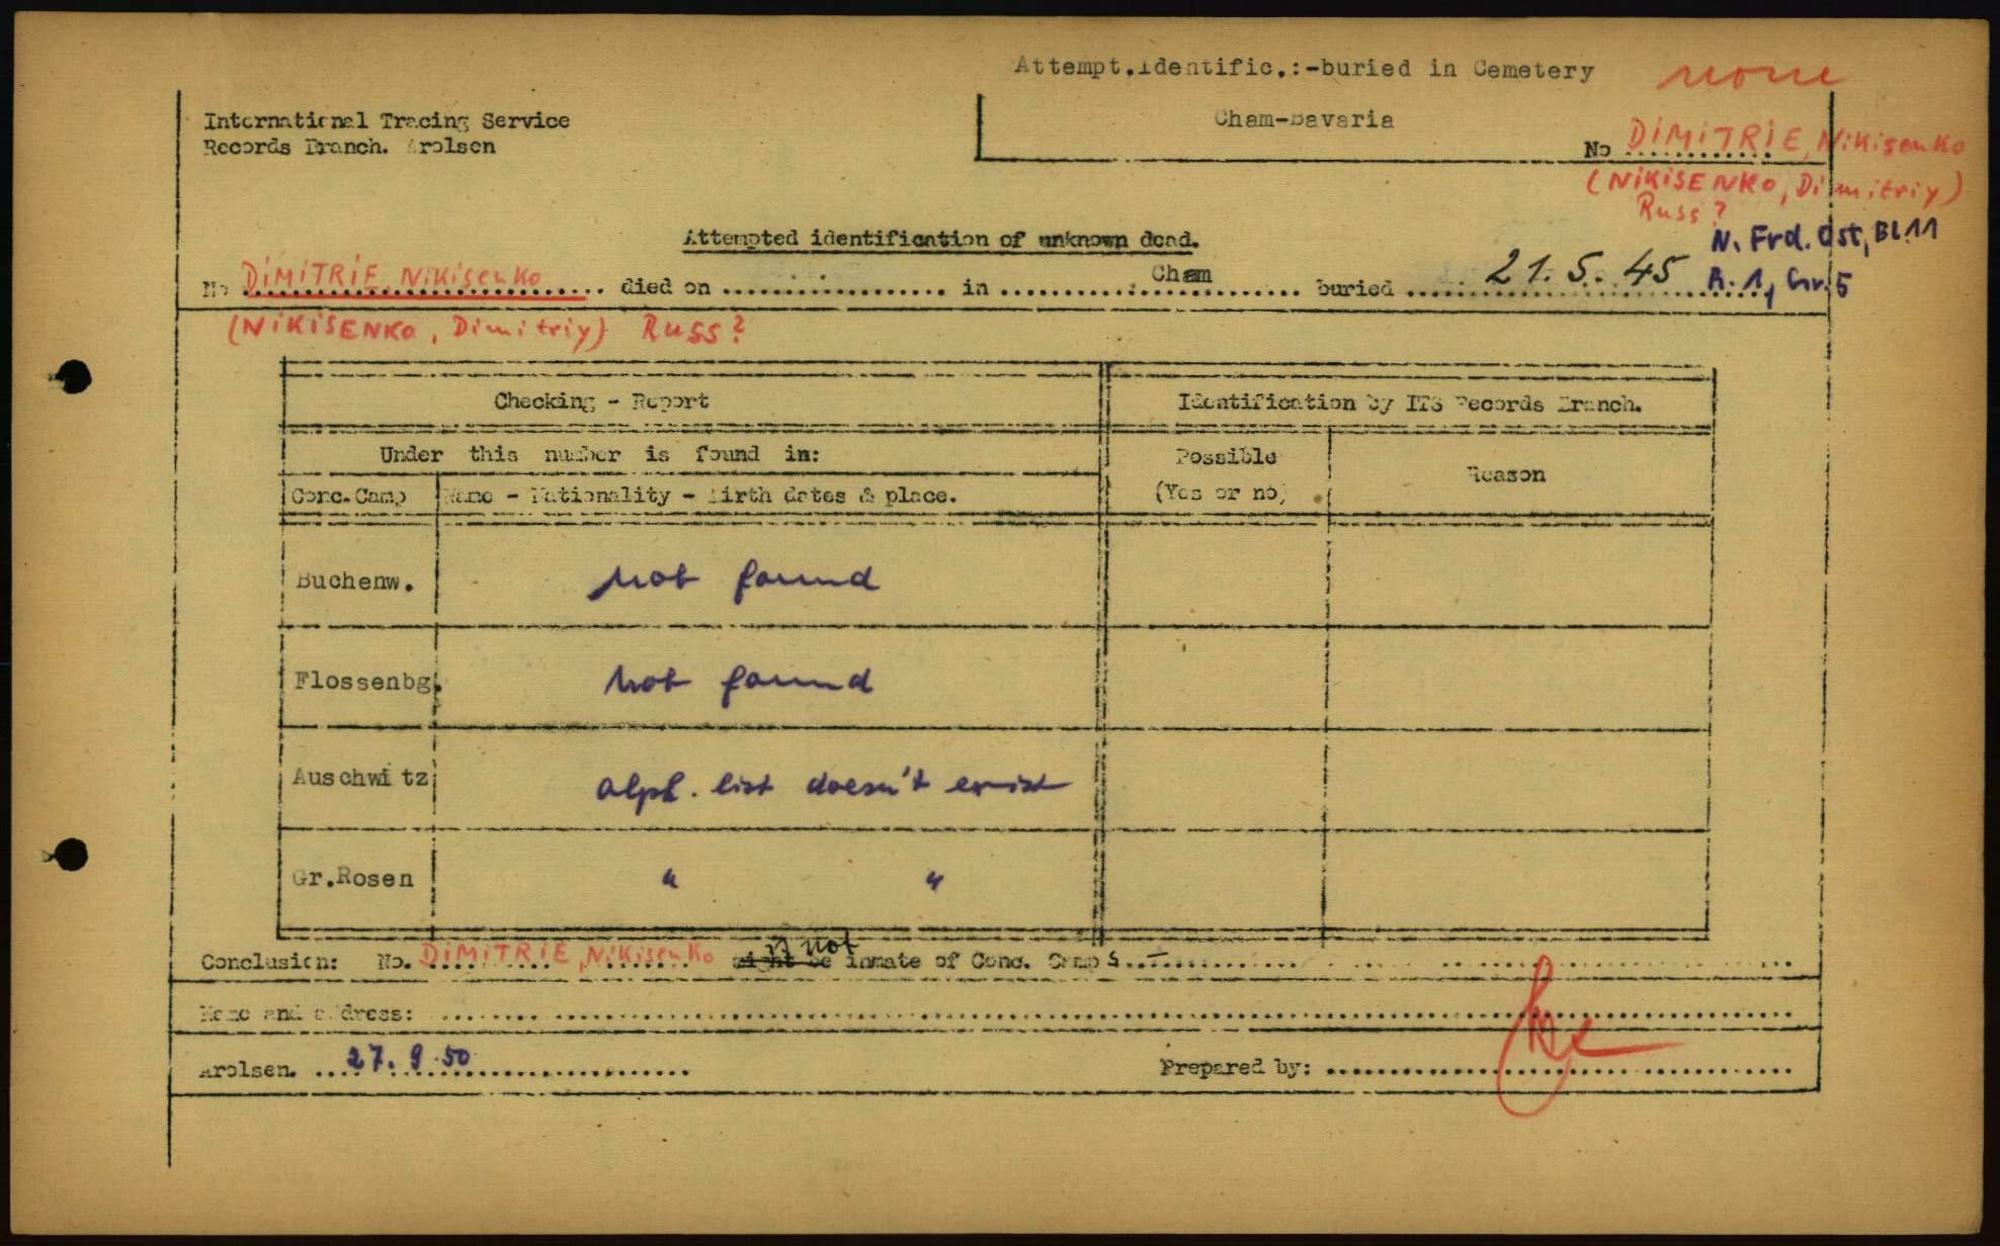 Attempt.Identific.:-buried in Cemetery none
Cham-Bavaria
International Tracing Service
Records Branch. Arolsen
No DiMiTRiE, Nikisenko
(NiKiSENKo, Dimitriy)
Russ?
N. Frd. Ost, Bl. 11
A. 1, Gr. 5
Attempted identification of unknown dead.
No DiMiTRiE, Nikisenko died on .................. in Cham buried 21. 5. 45
(NiKiSENKo, Dimitriy) Russ?
Checking - Report Identification by ITS Records Branch.
Under this number is found in: Possible (Yes or no) Reason
Conc.Camp Name - Nationality - Birth dates & place.
Buchenw. not found
Flossenbg. not found
Auschwitz alph. list doesn't exist
Gr.Rosen " "
Conclusion: No. DiMiTRiE, Nikisenko might be is not inmate of Conc. Camp s. –
Name and address: ..........
Arolsen. 27. 9. 50 Prepared by: ..........